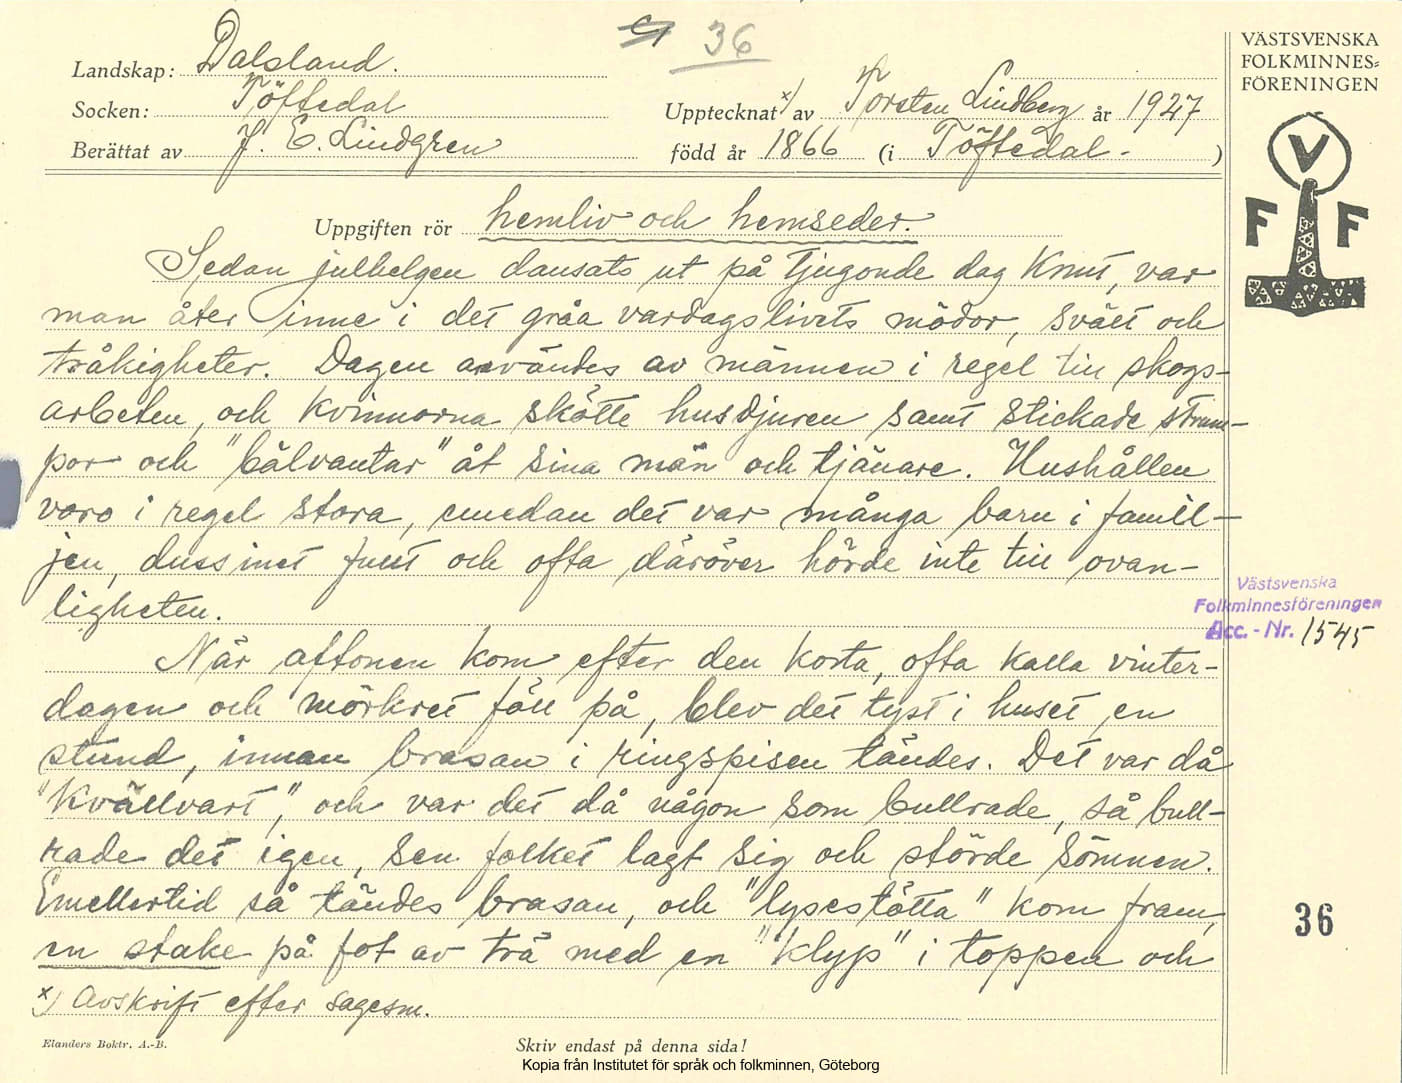 36
VÄSTSVENSKA
FOLKMINNES=
FÖRENINGEN
Landskap: Dalsland.
Socken: Töftedal
Upptecknat x) av Torsten Lindberg år 1927
Berättat av J. E. Lindgren
född år 1866 (i Töftedal - )
V
F F
V
Uppgiften rör hemliv och hemseder.
Sedan julhelgen dansats ut på Tjugonde dag Knut, var
man åter inne i det gråa vardagslivets mödor, svält och
tråkigheter. Dagen användes av männen i regel till skogs-
arbeten, och kvinnorna skötte husdjuren samt stickade strum-
por och "bälvantar" åt sina män och tjänare. Hushållen
voro i regel stora, emedan det var många barn i famil-
jen, dussinet fullt och ofta däröver hörde inte till ovan-
ligheten.
När aftonen kom efter den korta, ofta kalla vinter-
dagen och mörkret föll på, blev det tyst i huset en
stund, innan brasan i ringspisen tändes. Det var då
"Kvällvart", och var det då någon som bullrade, så bull-
rade det igen, sen folket lagt sig och störde sömnen.
Emellertid så tändes brasan, och "lysestötta" kom fram,
en stake på fot av trä med en "klyp" i toppen och
x) Avskrift efter sagesm.
Västsvenska
Folkminnesföreningen
Acc. - Nr. 1545
36
Elanders Boktr. A.-B.
Skriv endast på denna sida!
Kopia från Institutet för språk och folkminnen, Göteborg